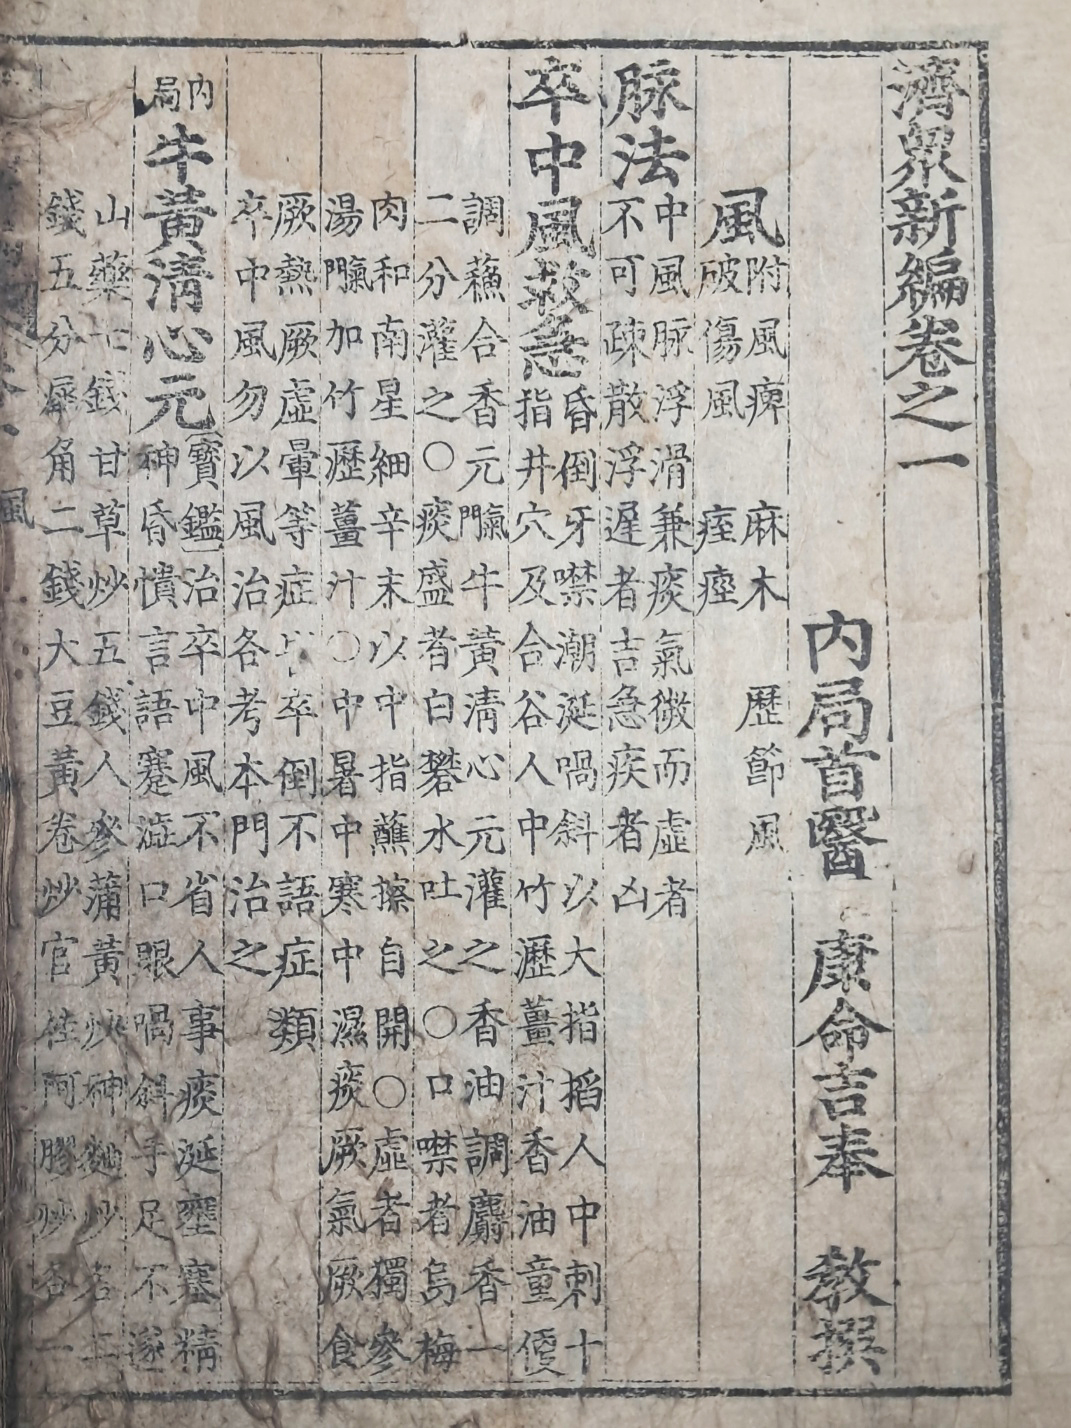 濟衆新編卷之一
內局首醫 康命吉奉 敎撰
風附風痺 麻木 歷節風
破傷風 痓痙
脉法中風脉浮滑兼痰氣微而虛者
不可疎散浮遲者吉急疾者凶
卒中風救急昏倒牙噤潮涎喎斜以大指搯人中刺十
指井穴及合谷人中竹瀝薑汁香油童便
調蘇合香元或牛黃淸心元灌之香油調麝香一
二分灌之○痰盛者白礬水吐之○口噤者烏梅
肉和南星細辛末以中指蘸擦自開○虛者獨參
湯加竹瀝薑汁○中暑中寒中濕痰厥氣厥食
厥熱厥虛暈等症卒倒不語症類
卒中風勿以風治各考本門治之
內局牛黃淸心元寶鑑治卒中風不省人事痰涎壅塞精
神昏憒言語蹇澁口眼喎斜手足不遂
山藥七錢甘草炒五錢人參蒲黃炒神麯炒各二
錢五分犀角二錢大豆黃卷炒官桂阿膠炒各一
風